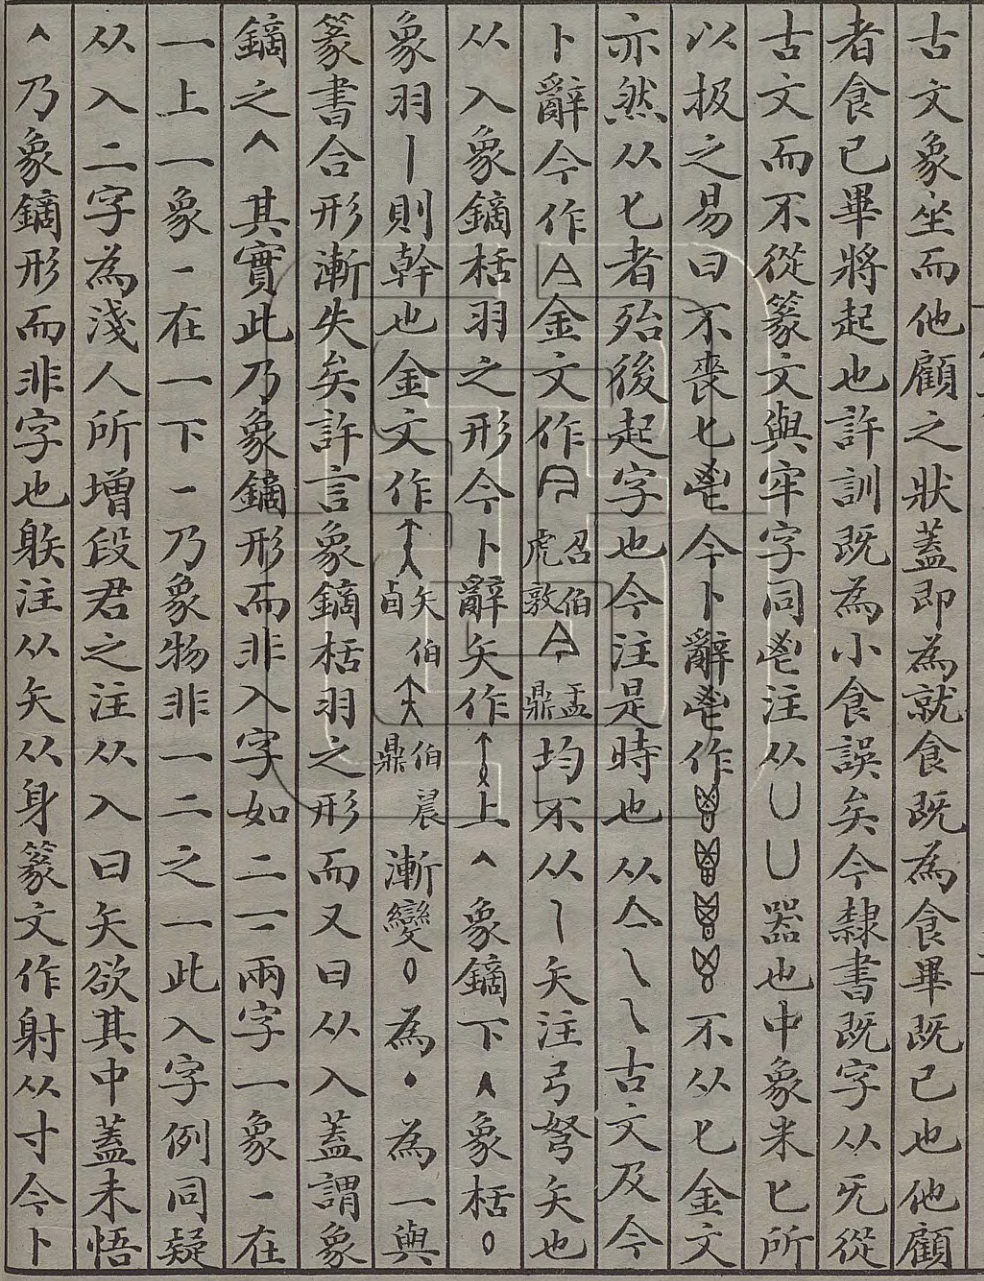 古文象坐而他顧之狀蓋即為就食既為食畢既已也他顧
者食已畢將起也許訓既為小食誤矣今隸書既字从旡從
古文而不從篆文與牢字同鬯注从凵凵器也中象米匕所
以扱之易曰不喪匕鬯今卜辭鬯作不从匕金文
亦然从匕者殆後起字也今注是時也从亼乀乀古文及今
卜辭今作A金文作召伯虎敦盂鼎均不从乀矢注弓弩矢也
从入象鏑栝羽之形今卜辭矢作上＾象鏑下∧象栝
象羽丨則幹也金文作矢伯卣伯晨鼎漸變為・為一與
篆書合形漸失矣許言象鏑栝羽之形而又曰从入蓋謂象
鏑之＾其實此乃象鏑形而非入字如二一兩字一象一在
一上一象一在一下一乃象物非一二之一此入字例同疑
从入二字為淺人所增段君之注从入曰矢欲其中蓋未悟
＾乃象鏑形而非字也躲注从矢从身篆文作射从寸今卜